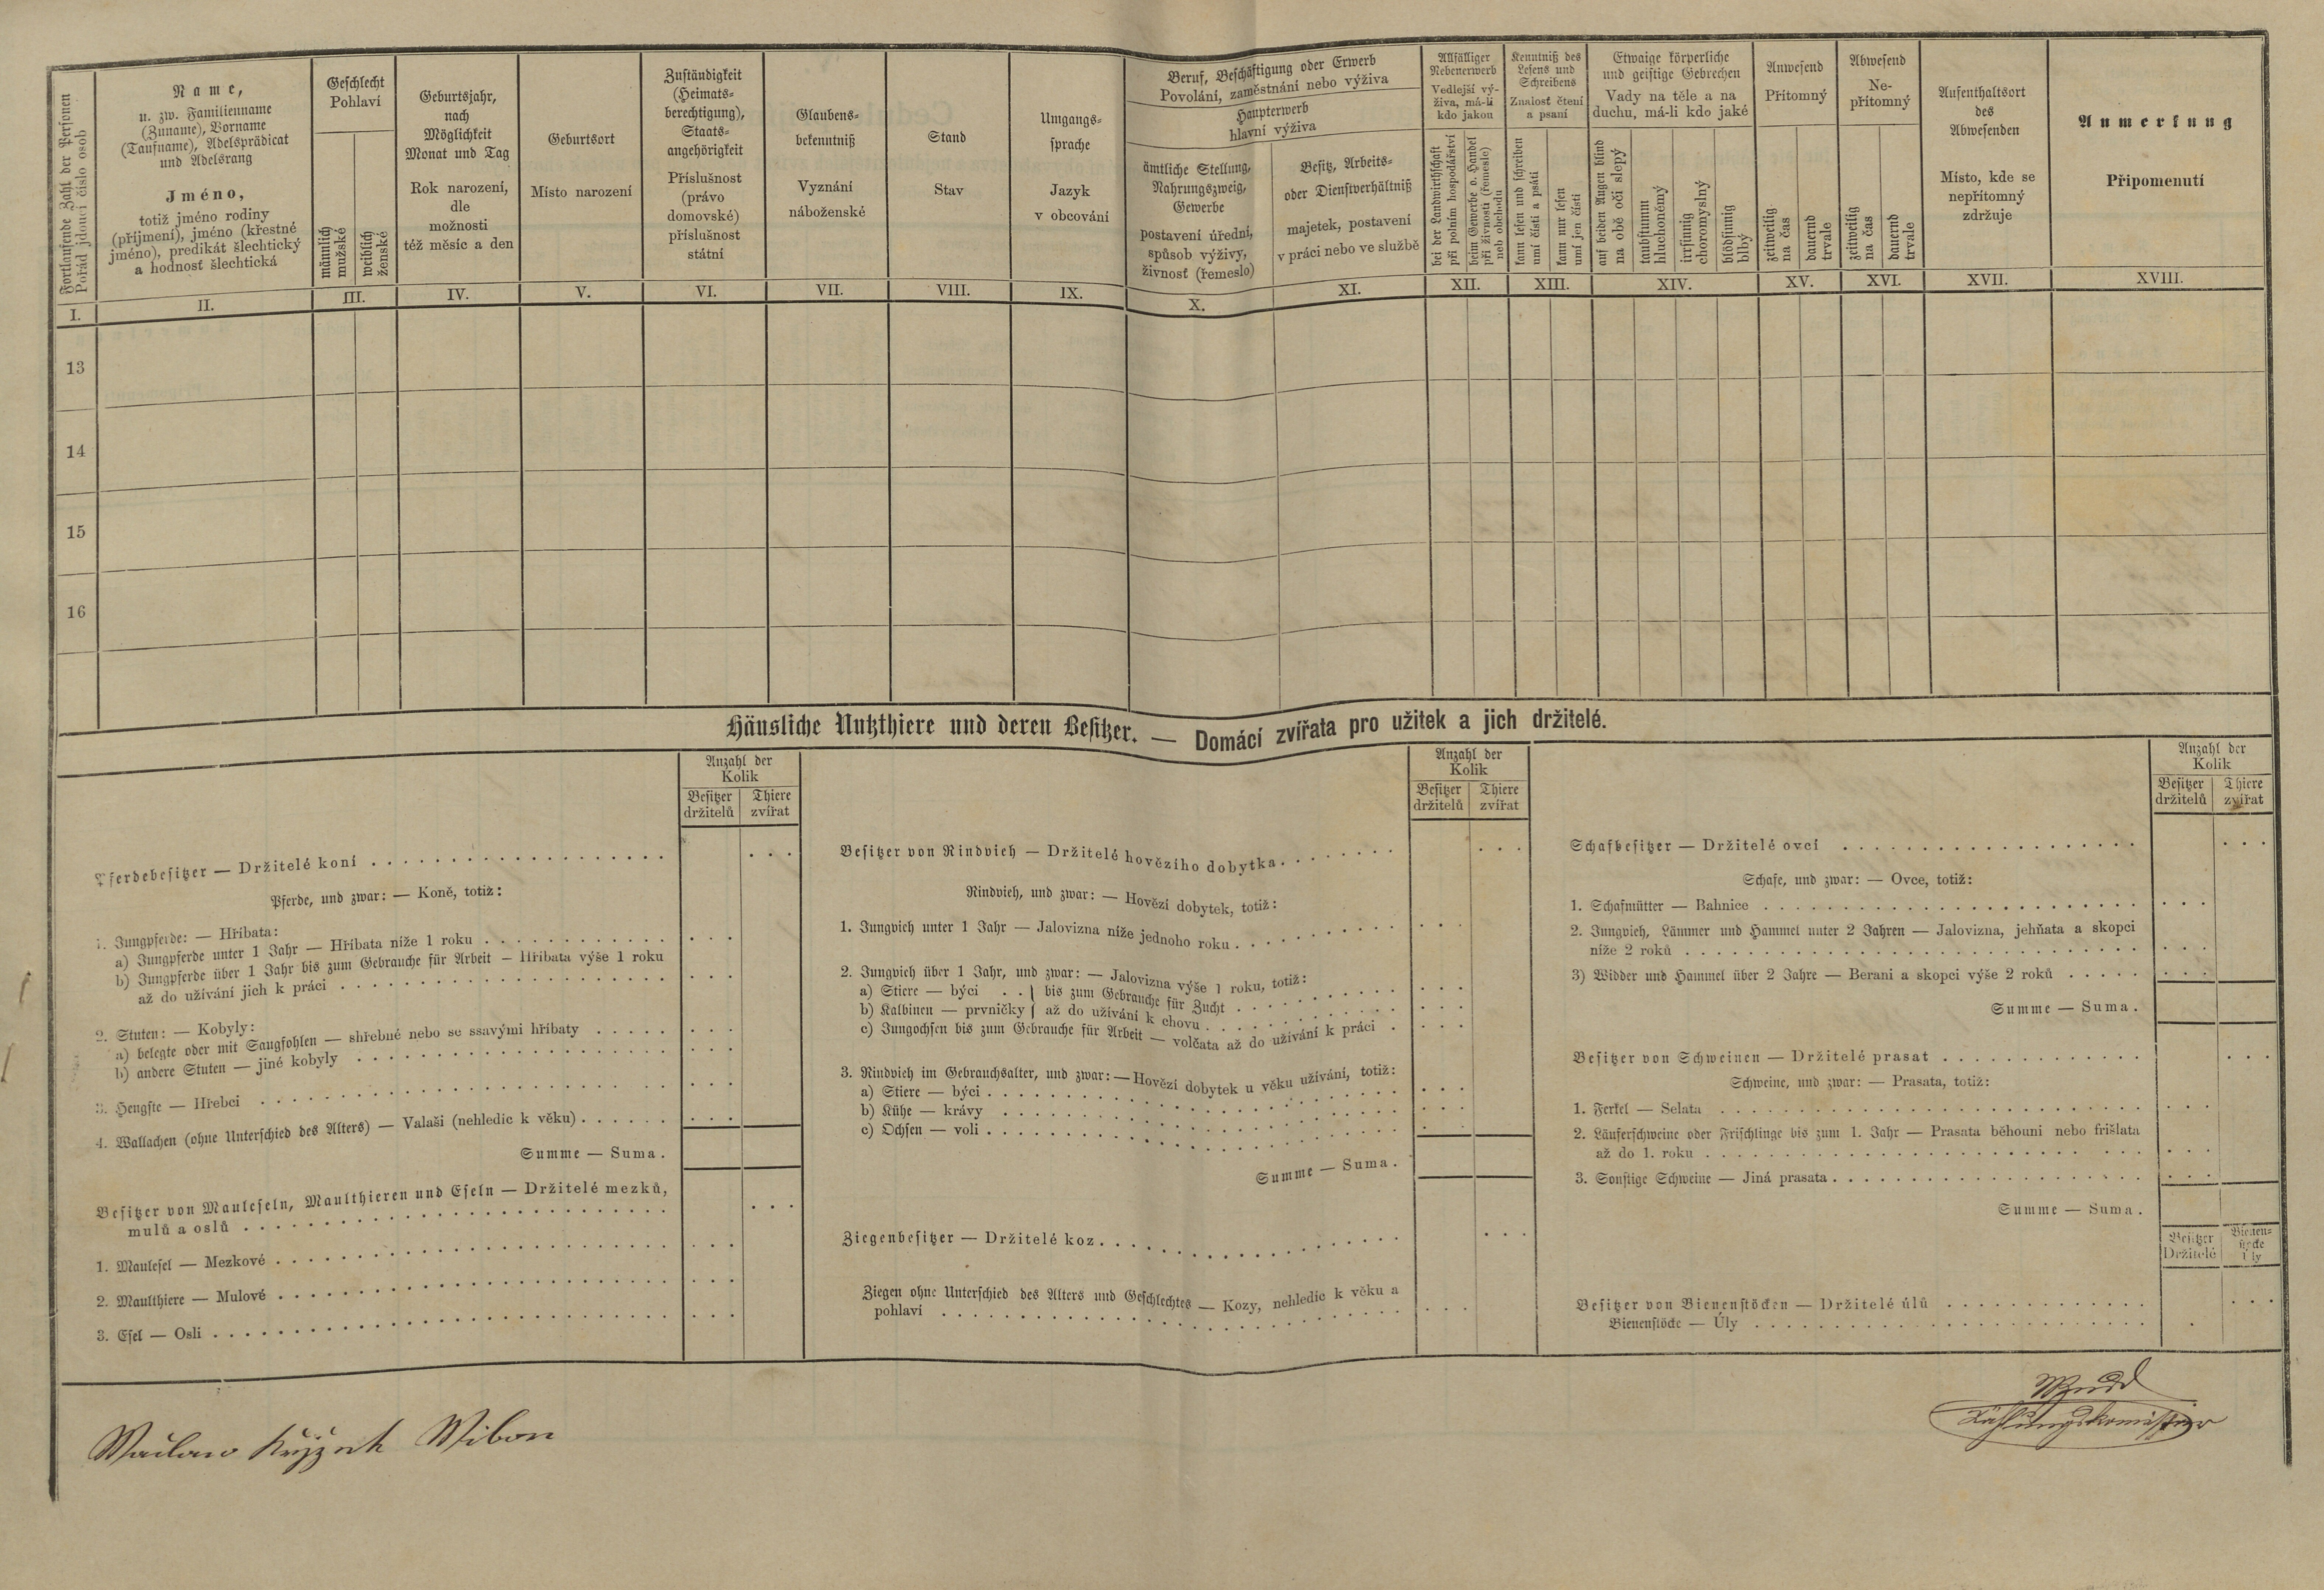 Fortlaufende Zahl der Personen
Pořád jdoucí číslo osob
I.
Name,
u. zw. Familienname
(Zuname), Vorname
(Taufname), Adelsprädicat
und Adelsrang
Jméno,
totiž jméno rodiny
(příjmení), jméno (křestné
jméno), predikát šlechtický
a hodnosť šlechtická
II.
Geschlecht
Pohlaví
männlich
mužské
weiblich
ženské
III.
Geburtsjahr,
nach
Möglichkeit
Monat und Tag
Rok narození,
dle
možnosti
též měsíc a den
IV.
Geburtsort
Místo narození
V.
Zuständigkeit
(Heimats-
berechtigung),
Staats-
angehörigkeit
Příslušnost
(právo
domovské)
příslušnost
státní
VI.
Glaubens-
bekenntniß
Vyznání
náboženské
VII.
Stand
Stav
VIII.
Umgangs-
sprache
Jazyk
v obcování
IX.
Beruf, Beschäftigung oder Erwerb
Povolání, zaměstnání nebo výživa
Haupterwerb
hlavní výživa
ämtliche Stellung,
Nahrungszweig,
Gewerbe
postavení úřední,
spůsob výživy,
živnosť (řemeslo)
X.
Besitz, Arbeits-
oder Dienstverhältniß
majetek, postavení
v práci nebo ve službě
XI.
Allfälliger
Nebenerwerb
Vedlejší vý-
živa, má-li
kdo jakou
bei der Landwirthschaft
při polním hospodářství
beim Gewerbe o. Handel
při živnosti (řemesle)
neb obchodu
XII.
Kenntniß des
Lesens und
Schreibens
Znalosť čtení
a psaní
kann lesen und schreiben
umí čísti a psáti
kann nur lesen
umí jen čísti
XIII.
Etwaige körperliche
und geistige Gebrechen
Vady na těle a na
duchu, má-li kdo jaké
auf beiden Augen blind
na obě oči slepý
taubstumm
hluchoněmý
irrsinnig
choromyslný
blödsinnig
blbý
XIV.
Anwesend
Přítomný
zeitweilig
na čas
dauernd
trvale
XV.
Abwesend
Ne-
přítomný
zeitweilig
na čas
dauernd
trvale
XVI.
Aufenthaltsort
des
Abwesenden
Místo, kde se
nepřítomný
zdržuje
XVII.
Anmerkung
Připomenutí
XVIII.
13
14
15
16
Häusliche Nutzthiere und deren Besitzer. — Domácí zvířata pro užitek a jich držitelé.
Anzahl der
Kolik
Besitzer
držitelů
Thiere
zvířat
Pferdebesitzer — Držitelé koní
Pferde, und zwar: — Koně, totiž:
1. Jungpferde: — Hříbata:
a) Jungpferde unter 1 Jahr — Hříbata níže 1 roku
b) Jungpferde über 1 Jahr bis zum Gebrauche für Arbeit — Hříbata výše 1 roku
až do užívání jich k práci
2. Stuten: — Kobyly:
a) belegte oder mit Saugfohlen — shřebné nebo se ssavými hříbaty
b) andere Stuten — jiné kobyly
3. Hengste — Hřebci
4. Wallachen (ohne Unterschied des Alters) — Valaši (nehledíc k věku)
Summe — Suma.
Besitzer von Mauleseln, Maulthieren und Eseln — Držitelé mezků,
mulů a oslů
1. Maulesel — Mezkové
2. Maulthiere — Mulové
3. Esel — Osli
Anzahl der
Kolik
Besitzer
držitelů
Thiere
zvířat
Besitzer von Rindvieh — Držitelé hovězího dobytka
Rindvieh, und zwar: — Hovězí dobytek, totiž:
1. Jungvieh unter 1 Jahr — Jalovizna níže jednoho roku
2. Jungvieh über 1 Jahr, und zwar: — Jalovizna výše 1 roku, totiž:
a) Stiere — býci . . } bis zum Gebrauche für Zucht
b) Kalbinen — prvničky } až do užívání k chovu
c) Jungochsen bis zum Gebrauche für Arbeit — volčata až do užívání k práci
3. Rindvieh im Gebrauchsalter, und zwar: — Hovězí dobytek u věku užívání, totiž:
a) Stiere — býci
b) Kühe — krávy
c) Ochsen — voli
Summe — Suma.
Ziegenbesitzer — Držitelé koz
Ziegen ohne Unterschied des Alters und Geschlechtes — Kozy, nehledíc k věku a
pohlaví
Anzahl der
Kolik
Besitzer
držitelů
Thiere
zvířat
Schafbesitzer — Držitelé ovcí
Schafe, und zwar: — Ovce, totiž:
1. Schafmütter — Bahnice
2. Jungvieh, Lämmer und Hammel unter 2 Jahren — Jalovizna, jehňata a skopci
níže 2 roků
3) Widder und Hammel über 2 Jahre — Berani a skopci výše 2 roků
Summe — Suma.
Besitzer von Schweinen — Držitelé prasat
Schweine, und zwar: — Prasata, totiž:
1. Ferkel — Selata
2. Läuferschweine oder Frischlinge bis zum 1. Jahr — Prasata běhouni nebo frišlata
až do 1. roku
3. Sonstige Schweine — Jiná prasata
Summe — Suma.
Besitzer
Držitelé
Bienen-
stöcke
Úly
Besitzer von Bienenstöcken — Držitelé úlů
Bienenstöcke — Úly
Zählungskomissär